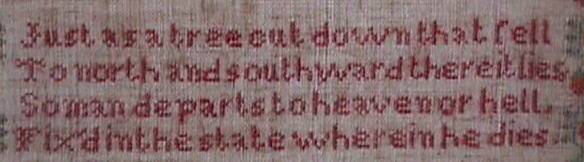 Just as a tree cut down that fell
To north and southward there it lies
So man departs to heaven or hell.
Fix'd in the state wherein he dies.